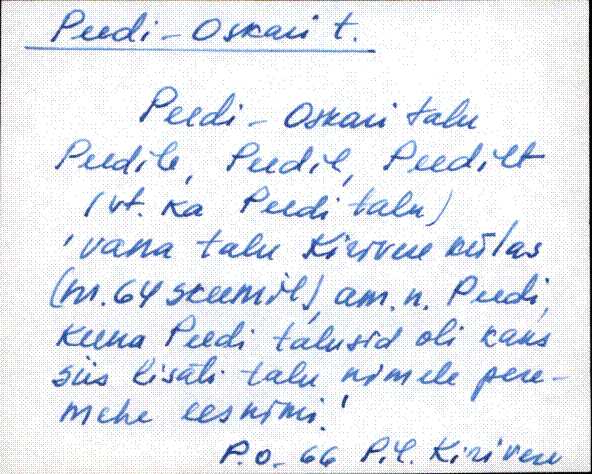 Peedi-Oskari t.
Peedi-Oskari talu
Peedile, Peedil, Peedilt
(vt. ka Peedi talu)
'vana talu Kirivere külas
(nr. 64 skeemil), am. n. Peedi,
kuna Peedi talusid oli kaks
siis lisati talu nimele pere-
mehe eesnimi.'
P.O. 66 Pil. Kirivere